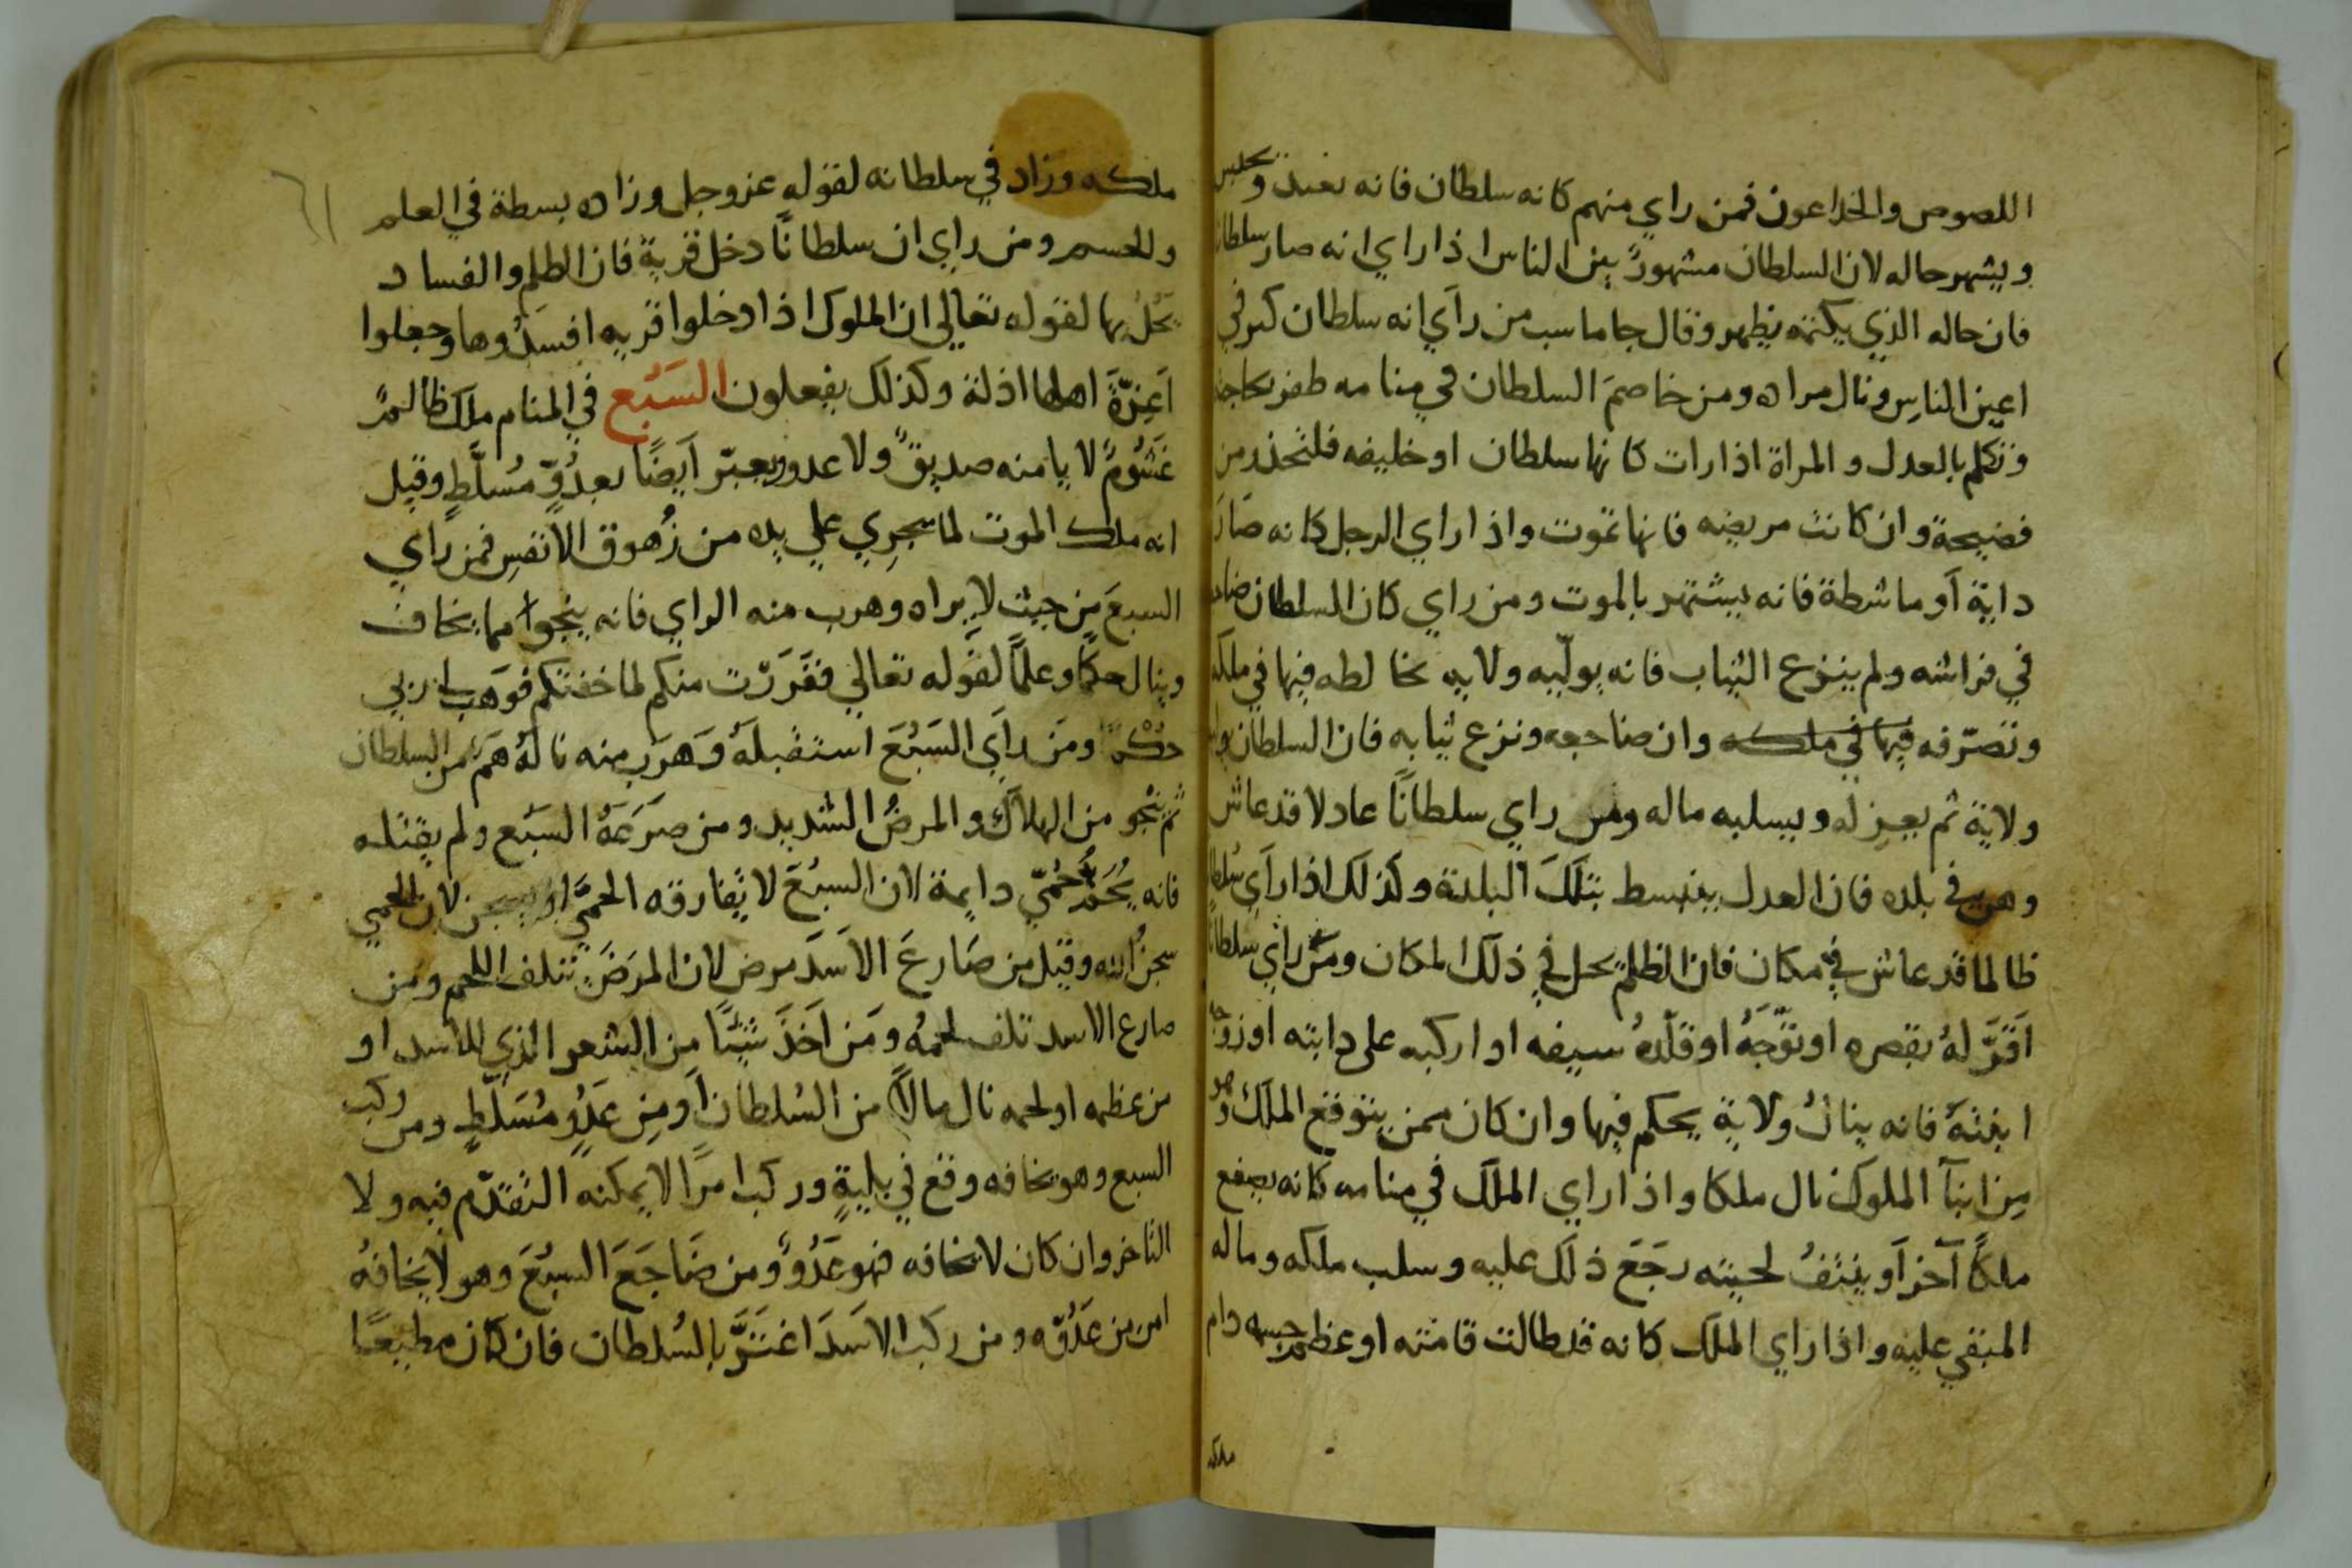 اللصوص والخداعون فمن راي منهم كانه سلطان فانه يقيد ويحبس
ويشهر حاله لان السلطان مشهورٌ بين الناس اذا راي انه صار سلطانا
فان حاله الذي يكتمه يظهر وقال جاماسب من رآي انه سلطان كبر في
اعين الناس ونال مراده ومن خاصمَ السلطان في منامه ظفر بحاجته
وتكلم بالعدل والمراة اذا رات كانها سلطان او خليفه فلتحذر من
فضيحة وان كانت مريضه فانها تموت واذا راي الرجل كانه صَارَ
داية آو ماشطة فانه يشتهر بالموت ومن راي كان السلطان ضاجعه
في فراشه ولم ينزع الثياب فانه يولّيه ولايه يخالطه فيها في ملكه
وتصرّفه فيها في ملكه وان ضاجعه ونزع ثيابه فان السلطان يوليه
ولاية ثم يعزله ويسلبه ماله ومن راي سلطانًا عادلا قد عاش
وهو في بلده فان العدل ينبسط بتلكَ البلدة وكذلك اذا رآي سُلطانا
ظالما قد عاش في مكان فان الظلم يحل في ذلك المكان ومن راي سلطانا
اَقرَّ لهُ بقصره او توَّجَهُ او قلّدهُ سيفه او اركبه على دابته او زوّجه
ابنتهُ فانه ينال ولاية يحكم فيها وان كان ممن يتوقع الملك وهو
مِن ابنآ الملوك نال ملكا واذا راي الملك في منامه كانه يصفع
ملكًا آخر اَو ينتفُ لحيته رجَعَ ذلك عليه وسلب ملكه وماله
المبقي عليه واذا راي الملك كانه قد طالت قامته او عظم جسمه دام
ملكه
ملكه وزاد في سلطانه لقوله عز وجل وزاده بسطة في العلم
والجسم ومن راي ان سلطانًا دخل قرية فان الظلم والفساد
يَحُلُّ بها لقوله تعالي ان الملوك اذا دخلوا قريه افسَدُوها وجعلوا
اَعِزّةَ اهلها اذلة وكذلك يفعلون السَبُع في المنام ملك ظالمٌ
غَشُومٌ لا يامنه صديقٌ ولا عدو ويعبّر اَيضًا بعدُوٍّ مُسلَّطٍ وقيل
انه ملك الموت لما يجرِي علي يده من زُهوق الانفسِ فمن راي
السبعَ من حيث لا يراه وهرب منه الراي فانه ينجوا مما يخاف
وينال حكمًا وعلمًا لقوله تعالي ففرَرْت منكم لما خفتكم فوَهب لي ربي
حُكْمًا ومَن رآي السَبُعَ استقبلهُ وَهَرَب منه نالهُ هَمٌّ من السلطان
ثُمَّ نجو من الهلاك والمرضُ الشديد ومن صَرَعَهُ السَبُع ولم يقتله
فانه يُحَمُّ حُمّي دايمة لان السبُعَ لا تُفارقه الحمَّي او يسجن لان الحمي
سجنُ الله وقيل من صَارعَ الاسَدَ مرض لان المرَضَ يتلف اللحم ومن
صارع الاسد تلف لحمهُ ومَن اَخَذَ شيئًا من الشعر الذي للاسد او
من عظمه او لحمه نال مالاً من السُلطان اَو مِن عَدُوٍ مُسَلّطٍ ومن ركب
السبع وهو يخافه وقع في بليةٍ وركب امرًا لا يمكنه التقدّم فيه ولا
التاخر وان كان لا يخافه فهو عَدُوٌ ومن ضَاجَعَ السبُعَ وهو لا يخافهُ
امن من عَدُوّه ومن ركب الاسَدَ اغتَرَّ بالسُلطان فان كان مطيعًا